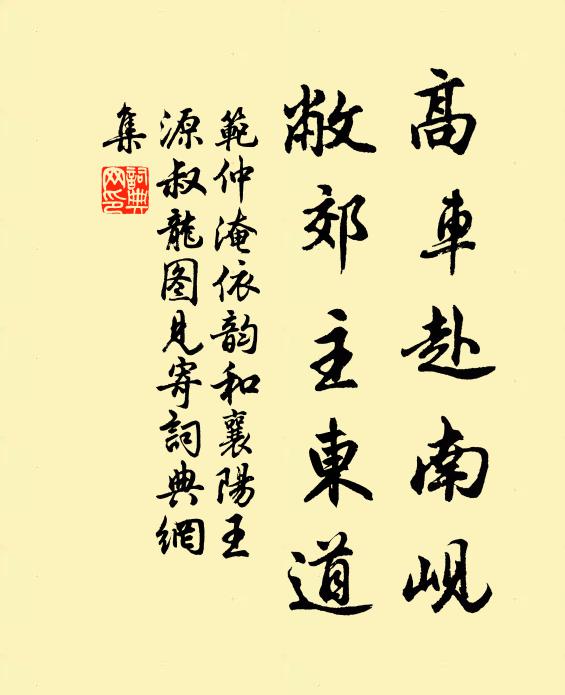 高車赴南峴
敞郊主東道
範仲淹依韵和襄陽王
源叔龍图見寄詞典網
集
詞典
网印